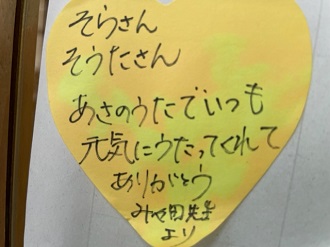 そらさん
そうたさん
あさのうたでいつも
元気にうたってくれて
ありがとう
みや田先生
より